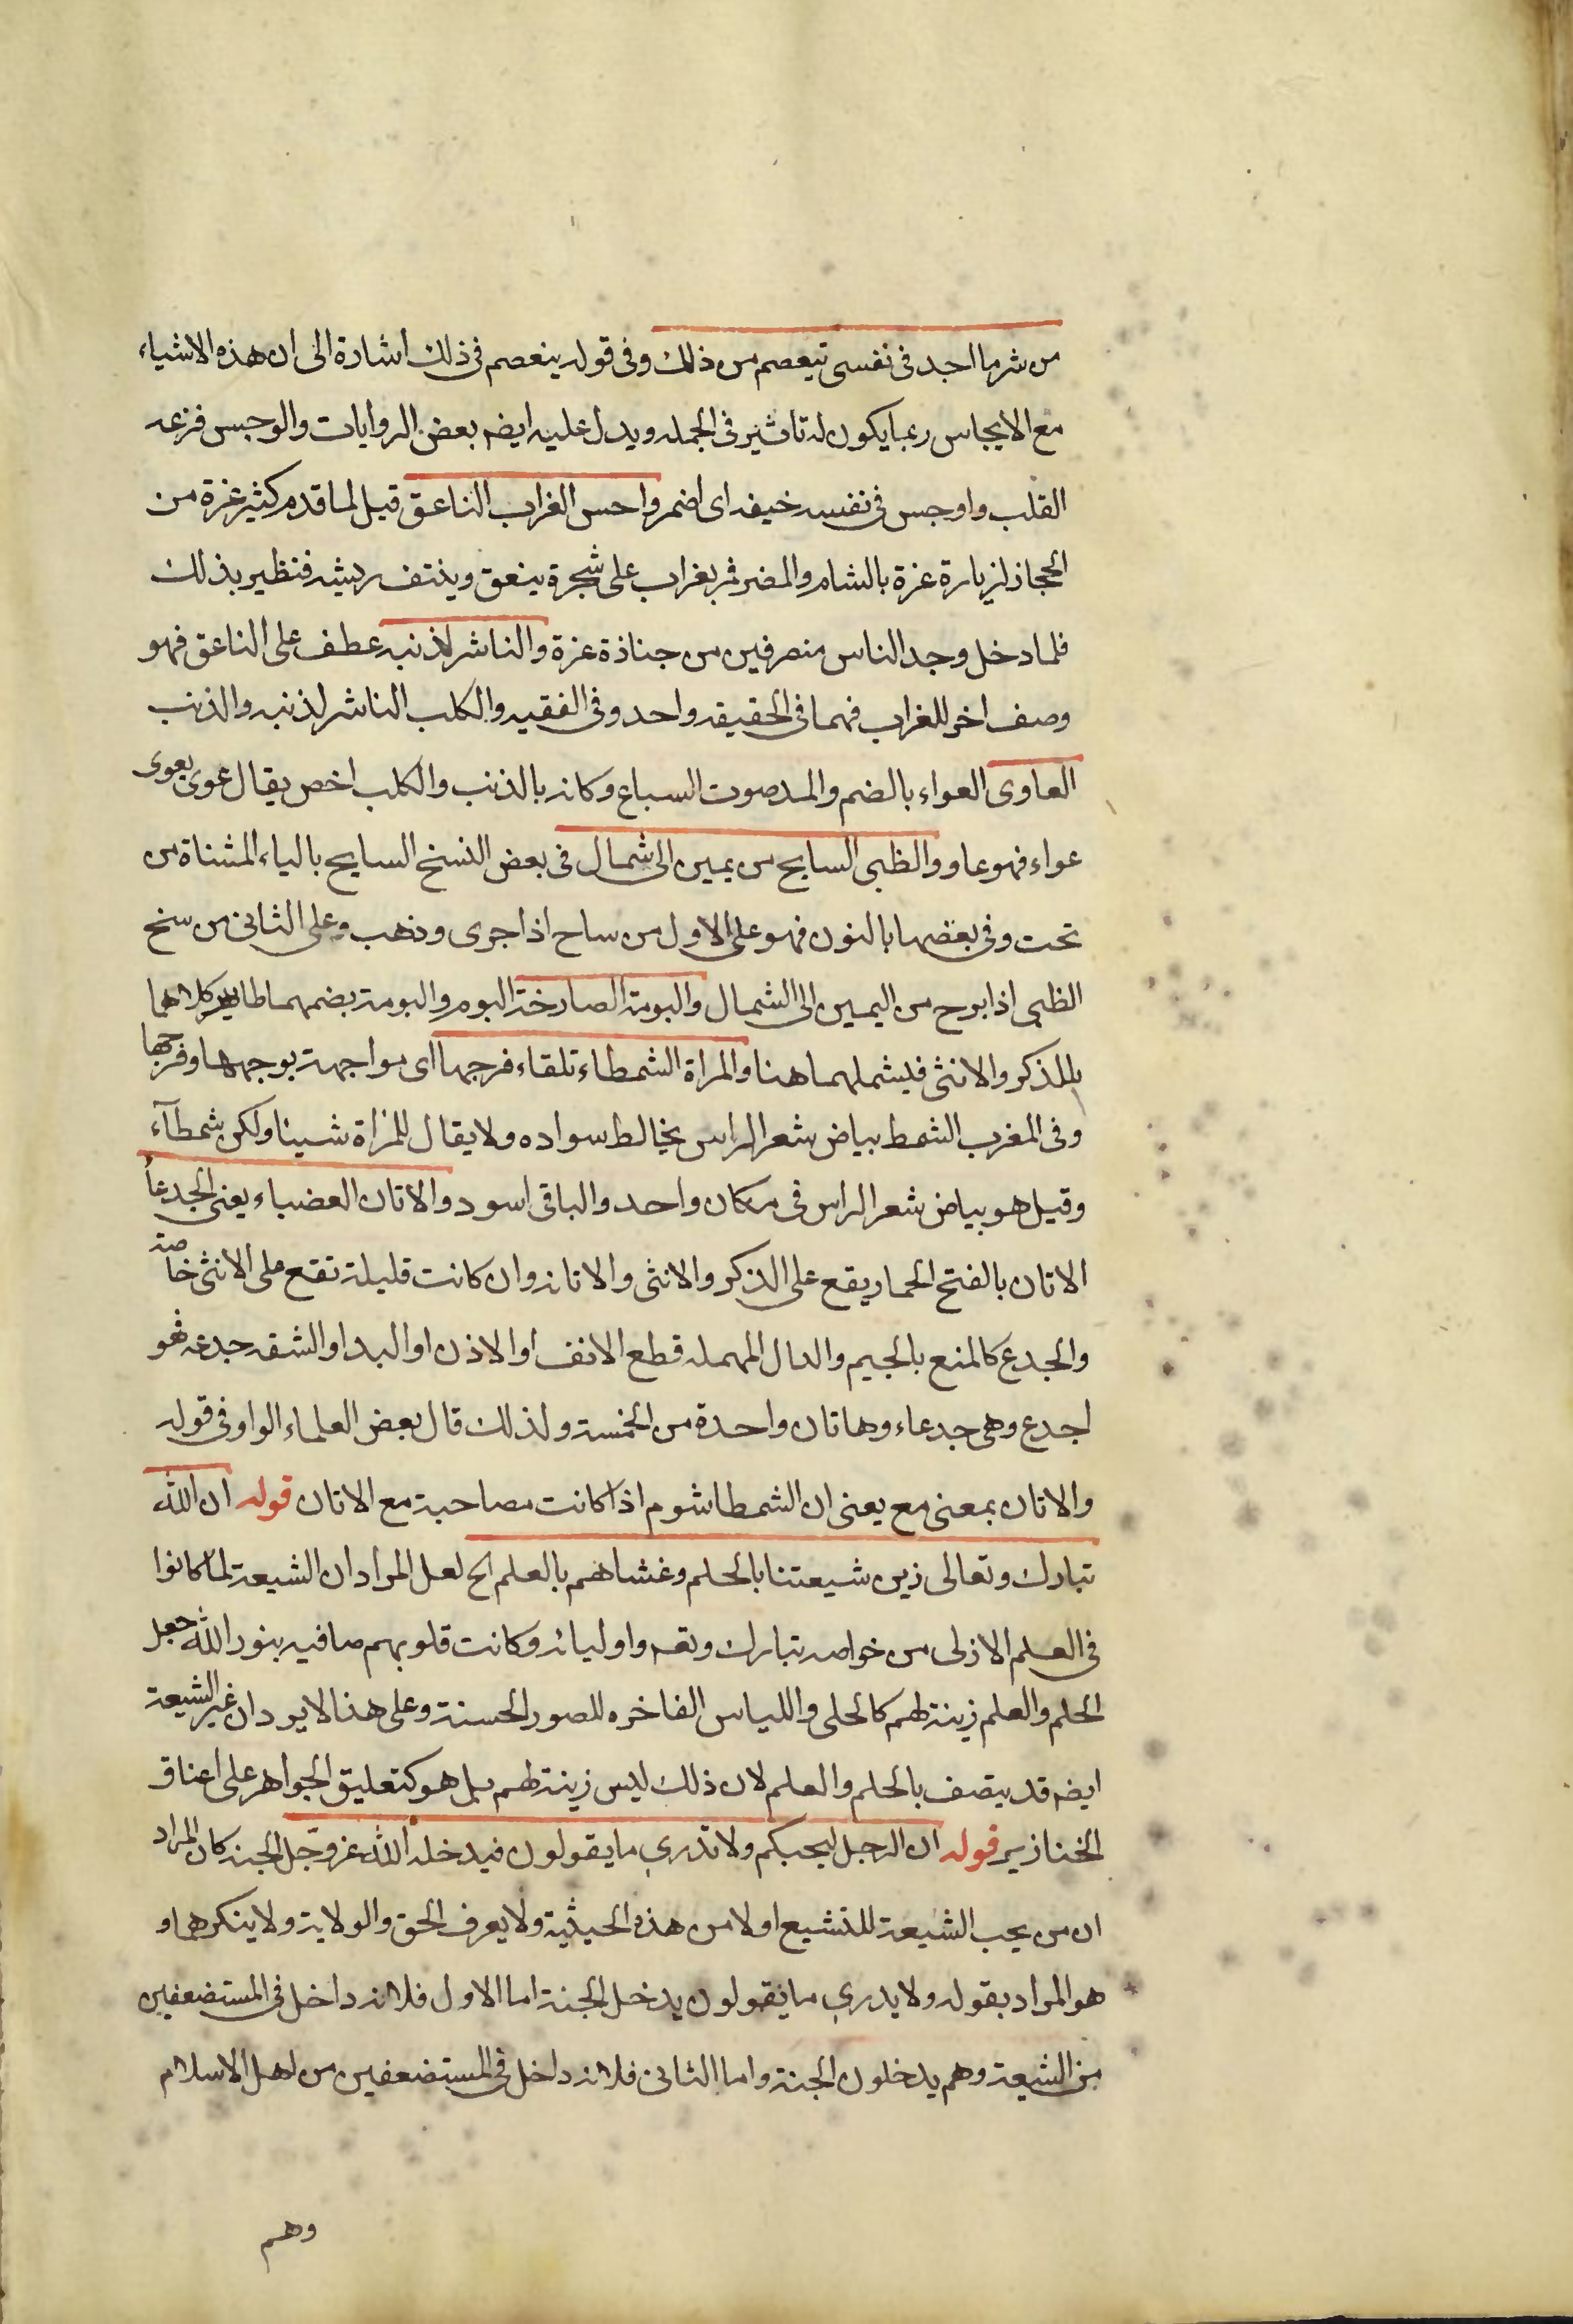 من شر ما اجد فى نفسى فيعصم من ذلك وفى قوله ينعصم فى ذلك اشارة الى ان هذه الاشياء
مع الايجاس ربما يكون له تاثير فى الجمله ويدل عليه ايضه بعض الروايات والوجس فزعه
القلب واوجس فى نفسه خيفه اى اضمر واحس الغراب الناعق قيل لما قدم كثير عزة من
الحجاز لزيارة عزة بالشام والمضر فمر بغراب على شجرة ينعق وينتف ريشه فتطير بذلك
فلما دخل وجد الناس منصرفين من جنازة عزة والناشر لذنبه عطف على الناعق فهو
وصف اخر للغراب فهما فى الحقيقه واحد وفى الفقيه والكلب الناشر لذنبه والذئب
العاوى العواء بالضم والمد صوت السباع وكانه بالذئب والكلب اخص يقال عوى يعوى
عواء فهو عاو والظبى السايح من يمين الى شمال فى بعض النسخ السايح بالياء المثناة من
تحت وفى بعضها بالنون فهو على الاول من ساح اذا جرى وذهب وعلى الثانى من سنح
الظبى اذا برح من اليمين الى الشمال والبومة الصارخة البوم والبومة بضمهما طاير كلاهما
للذكر والانثى فيشملهما هنا والمراة الشمطاء تلقاء فرجها اى مواجهة بوجهها وفرجها
وفى المغرب الشمط بياض شعر الراس يخالط سواده ولا يقال للمراة شيبا ولكن شمطآء
وقيل هو بياض شعر الراس فى مكان واحد والباقى اسود والاتان العضباء يعنى الجدعا
الاتان بالفتح الحمار يقع على الذكر والانثى والاتانه وان كانت قليلة تقع على الانثى خاصة
والجدع كالمنع بالجيم والدال المهمله قطع الانف او الاذن او اليد او الشفه جدعه فهو
اجدع وهى جدعاء وهاتان واحدة من الخمسة ولذلك قال بعض العلماء الواو فى قوله
والاتان بمعنى مع يعنى ان الشمطا شوم اذا كانت مصاحبة مع الاتان قوله ان الله
تبارك وتعالى زين شيعتنا بالحلم وغشاهم بالعلم الخ لعل المراد ان الشيعة لما كانوا
فى العلم الازلى من خواصه تبارك وتعه واوليائه وكانت قلوبهم صافيه بنور الله جعل
الحلم والعلم زينة لهم كالحلى واللباس الفاخره للصور الحسنة وعلى هذا لا يرد ان غير الشيعة
ايضه قد يتصف بالحلم والعلم لان ذلك ليس زينة لهم بل هو كتعليق الجواهر على اعناق
الخنازير قوله ان الرجل ليحبكم ولا تدرى ما يقولون فيدخله الله عز وجل الجنه كان المراد
ان من يحب الشيعة للتشيع او لا من هذه الحيثية ولا يعرف الحق والولاية ولا ينكرهما و
هو المراد بقوله ولا يدرى ما نقولون يدخل الجنة اما الاول فلانه داخل فى المستضعفين
من الشيعة وهم يدخلون الجنة واما الثانى فلانه داخل فى المستضعفين من اهل الاسلام
وهم